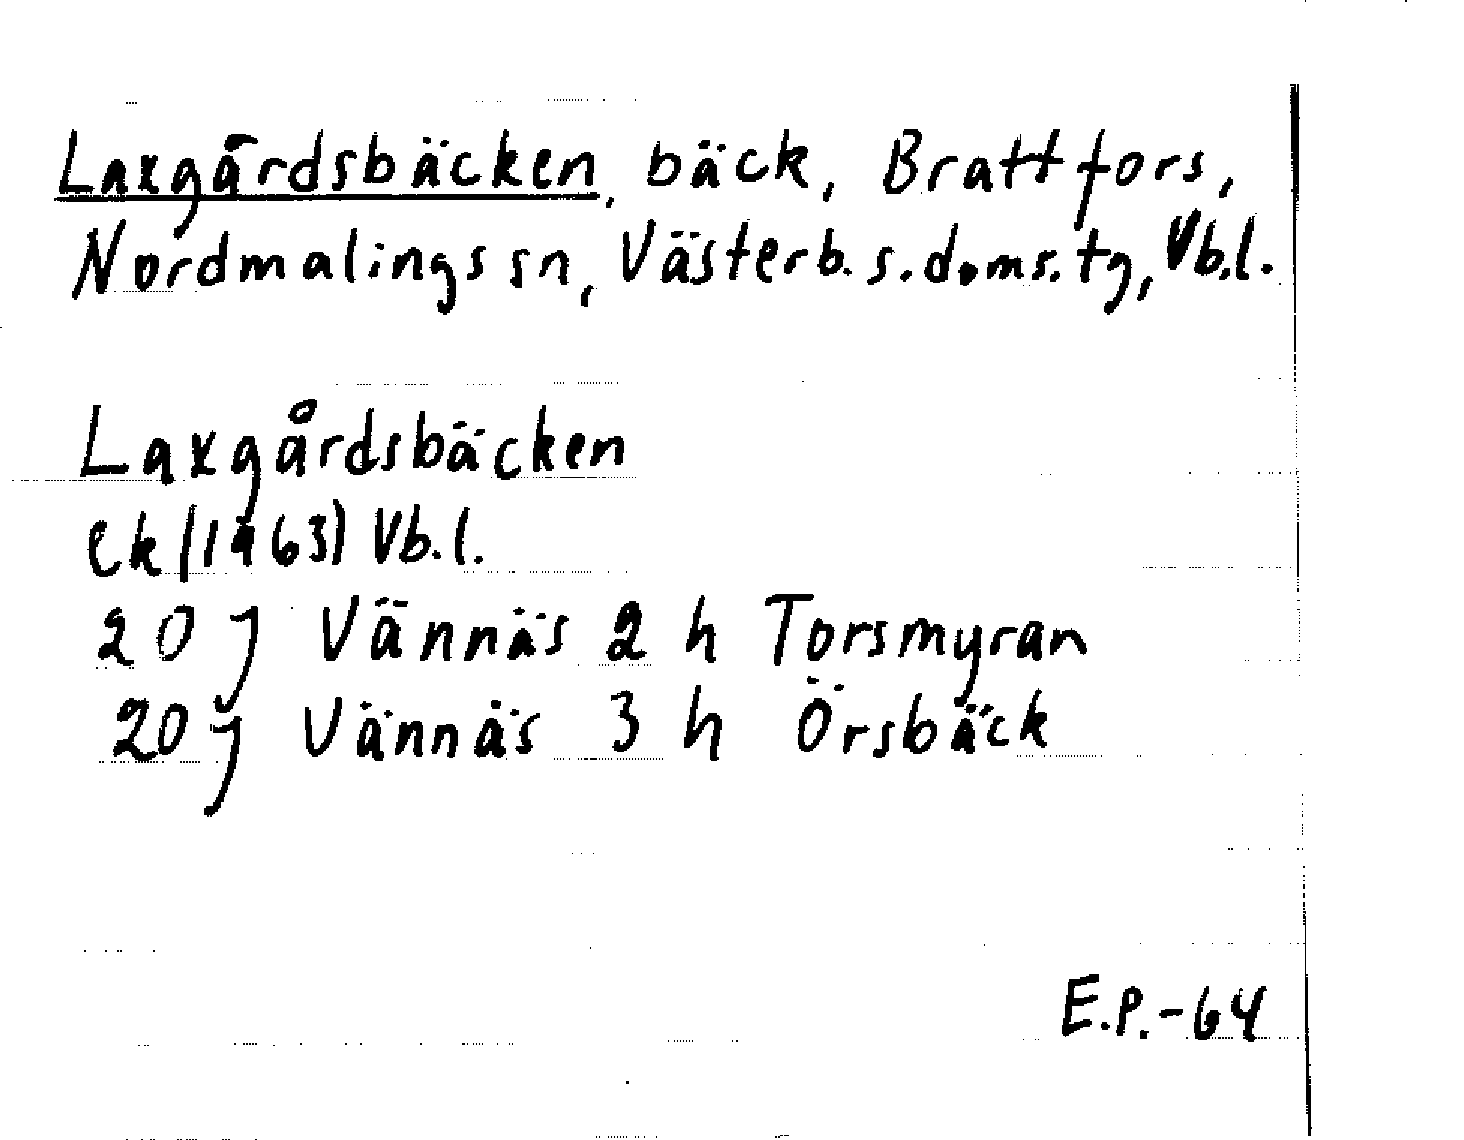 Laxgårdsbäcken, bäck, Brattfors,
Nordmalings sn, Västerb. s. doms. tg, Vb.l.
Laxgårdsbäcken
ek (1963) Vb.l.
20 J Vännäs 2 h Torsmyran
20 J Vännäs 3 h Örsbäck
E.P.-64